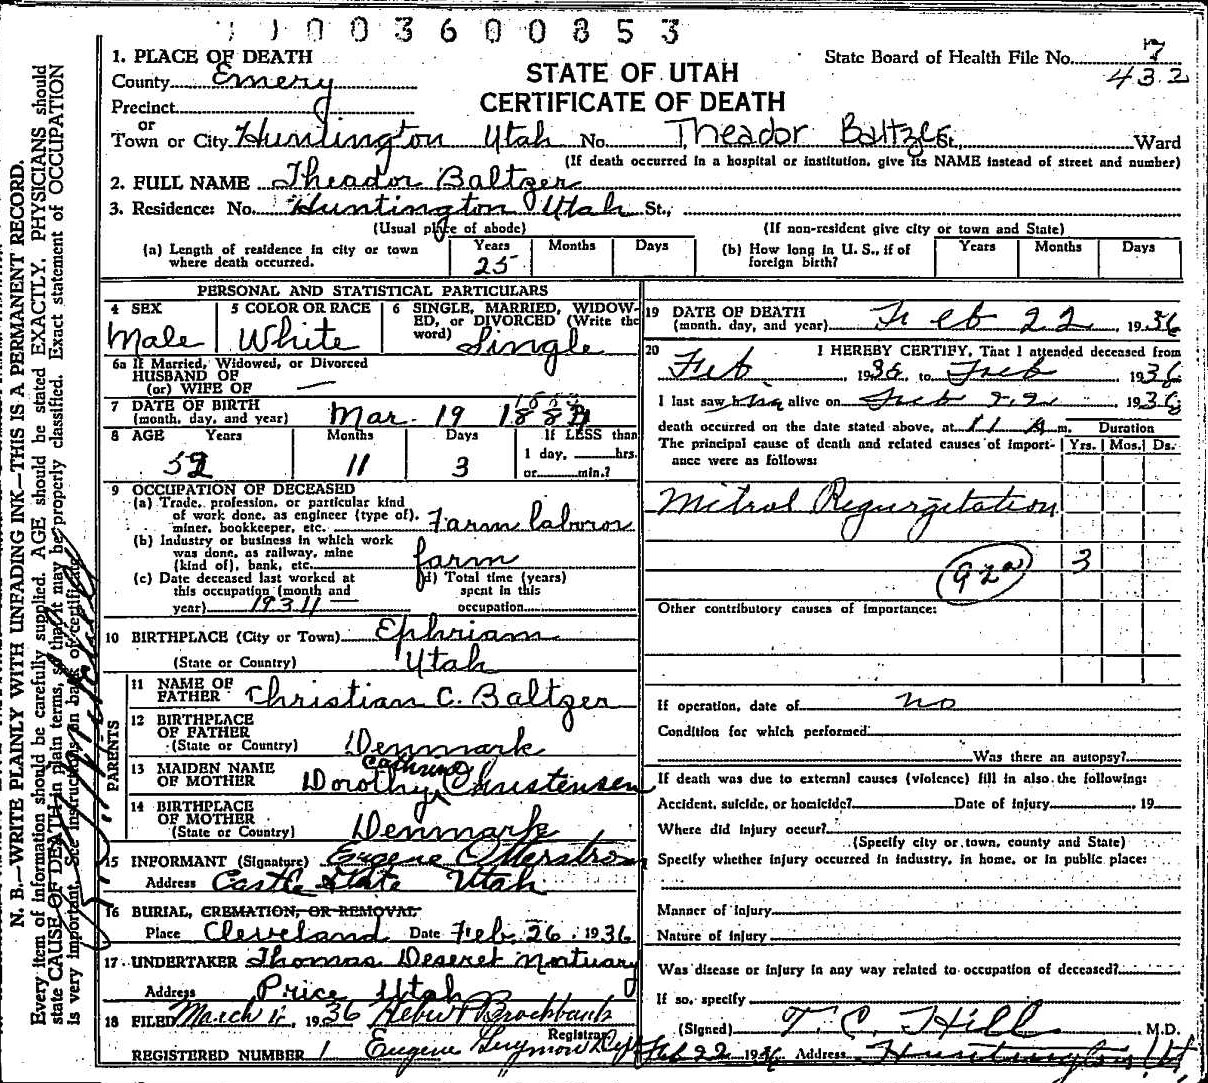 1 1 0 0 3 6 0 0 8 5 3
1. PLACE OF DEATH
State Board of Health File No. 7
County Emery
STATE OF UTAH
432
Precinct
CERTIFICATE OF DEATH
or
Town or City Huntington Utah No. Theador Baltzer St., Ward
(If death occurred in a hospital or institution, give its NAME instead of street and number)
2. FULL NAME Theador Baltzer
3. Residence: No. Huntington Utah St.,
(Usual place of abode) (If non-resident give city or town and State)
(a) Length of residence in city or town where death occurred. Years 25 Months Days
(b) How long in U. S., if of foreign birth? Years Months Days
PERSONAL AND STATISTICAL PARTICULARS
4 SEX Male
5 COLOR OR RACE White
6 SINGLE, MARRIED, WIDOWED, or DIVORCED (Write the word) Single
6a If Married, Widowed, or Divorced
HUSBAND OF
(or) WIFE OF —
7 DATE OF BIRTH
(month, day, and year) Mar. 19 1883
8 AGE Years 52 Months 11 Days 3
If LESS than
1 day, hrs.
or min.?
9 OCCUPATION OF DECEASED
(a) Trade, profession, or particular kind
of work done, as engineer (type of),
miner, bookkeeper, etc. Farm laboror
(b) Industry or business in which work
was done, as railway, mine
(kind of), bank, etc. farm
(c) Date deceased last worked at
this occupation (month and
year)
(d) Total time (years)
spent in this
occupation
10 BIRTHPLACE (City or Town) Ephriam
(State or Country) Utah
PARENTS
11 NAME OF
FATHER Christian C. Baltzer
12 BIRTHPLACE
OF FATHER
(State or Country) Denmark
13 MAIDEN NAME
OF MOTHER Dorothy Cathrine Christensen
14 BIRTHPLACE
OF MOTHER
(State or Country) Denmark
15 INFORMANT (Signature) Eugene Otterstrom
Address Castle Utah
16 BURIAL, CREMATION, OR REMOVAL
Place Cleveland Date Feb. 26, 1936
17 UNDERTAKER Thomas Deseret Mortuary
Address Price Utah
18 FILED March 1936 Brockbank
Registrar
REGISTERED NUMBER 1 Eugene
19 DATE OF DEATH
(month, day, and year) Feb 22, 1936
20 I HEREBY CERTIFY, That I attended deceased from
Feb, 1936, to Feb 1936
I last saw him alive on Feb 22 1936
death occurred on the date stated above, at 11 A m. Duration
The principal cause of death and related causes of importance were as follows: Yrs. Mos. Ds.
Mitral Regurgetation
92a 3
Other contributory causes of importance:
If operation, date of no
Condition for which performed
Was there an autopsy?
If death was due to external causes (violence) fill in also the following:
Accident, suicide, or homicide? Date of injury , 19
Where did injury occur?
(Specify city or town, county and State)
Specify whether injury occurred in industry, in home, or in public place:
Manner of injury
Nature of injury
Was disease or injury in any way related to occupation of deceased?
If so, specify
(Signed) T. C. Hill , M.D.
Feb 22 1936 Address Huntington, Ut.
N. B.—WRITE PLAINLY WITH UNFADING INK—THIS IS A PERMANENT RECORD.
Every item of information should be carefully supplied. AGE should be stated EXACTLY. PHYSICIANS should
state CAUSE OF DEATH in plain terms, so that it may be properly classified. Exact statement of OCCUPATION
is very important. See instructions on back of certificate.